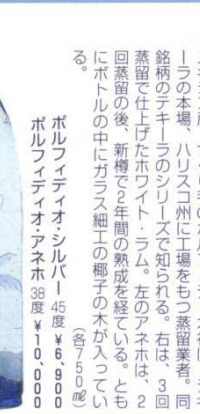 ーラの本場、ハリスコ州に工場をもつ蒸留業者。同
銘柄のテキーラのシリーズで知られる。右は、3回
蒸留で仕上げたホワイト・ラム。左のアネホは、2
回蒸留の後、新樽で2年間の熟成を経ている。とも
にボトルの中にガラス細工の椰子の木が入ってい
る。
(各750㎖)
ポルフィディオ・シルバー 45度 ¥6,900
ポルフィディオ・アネホ 38度 ¥10,000